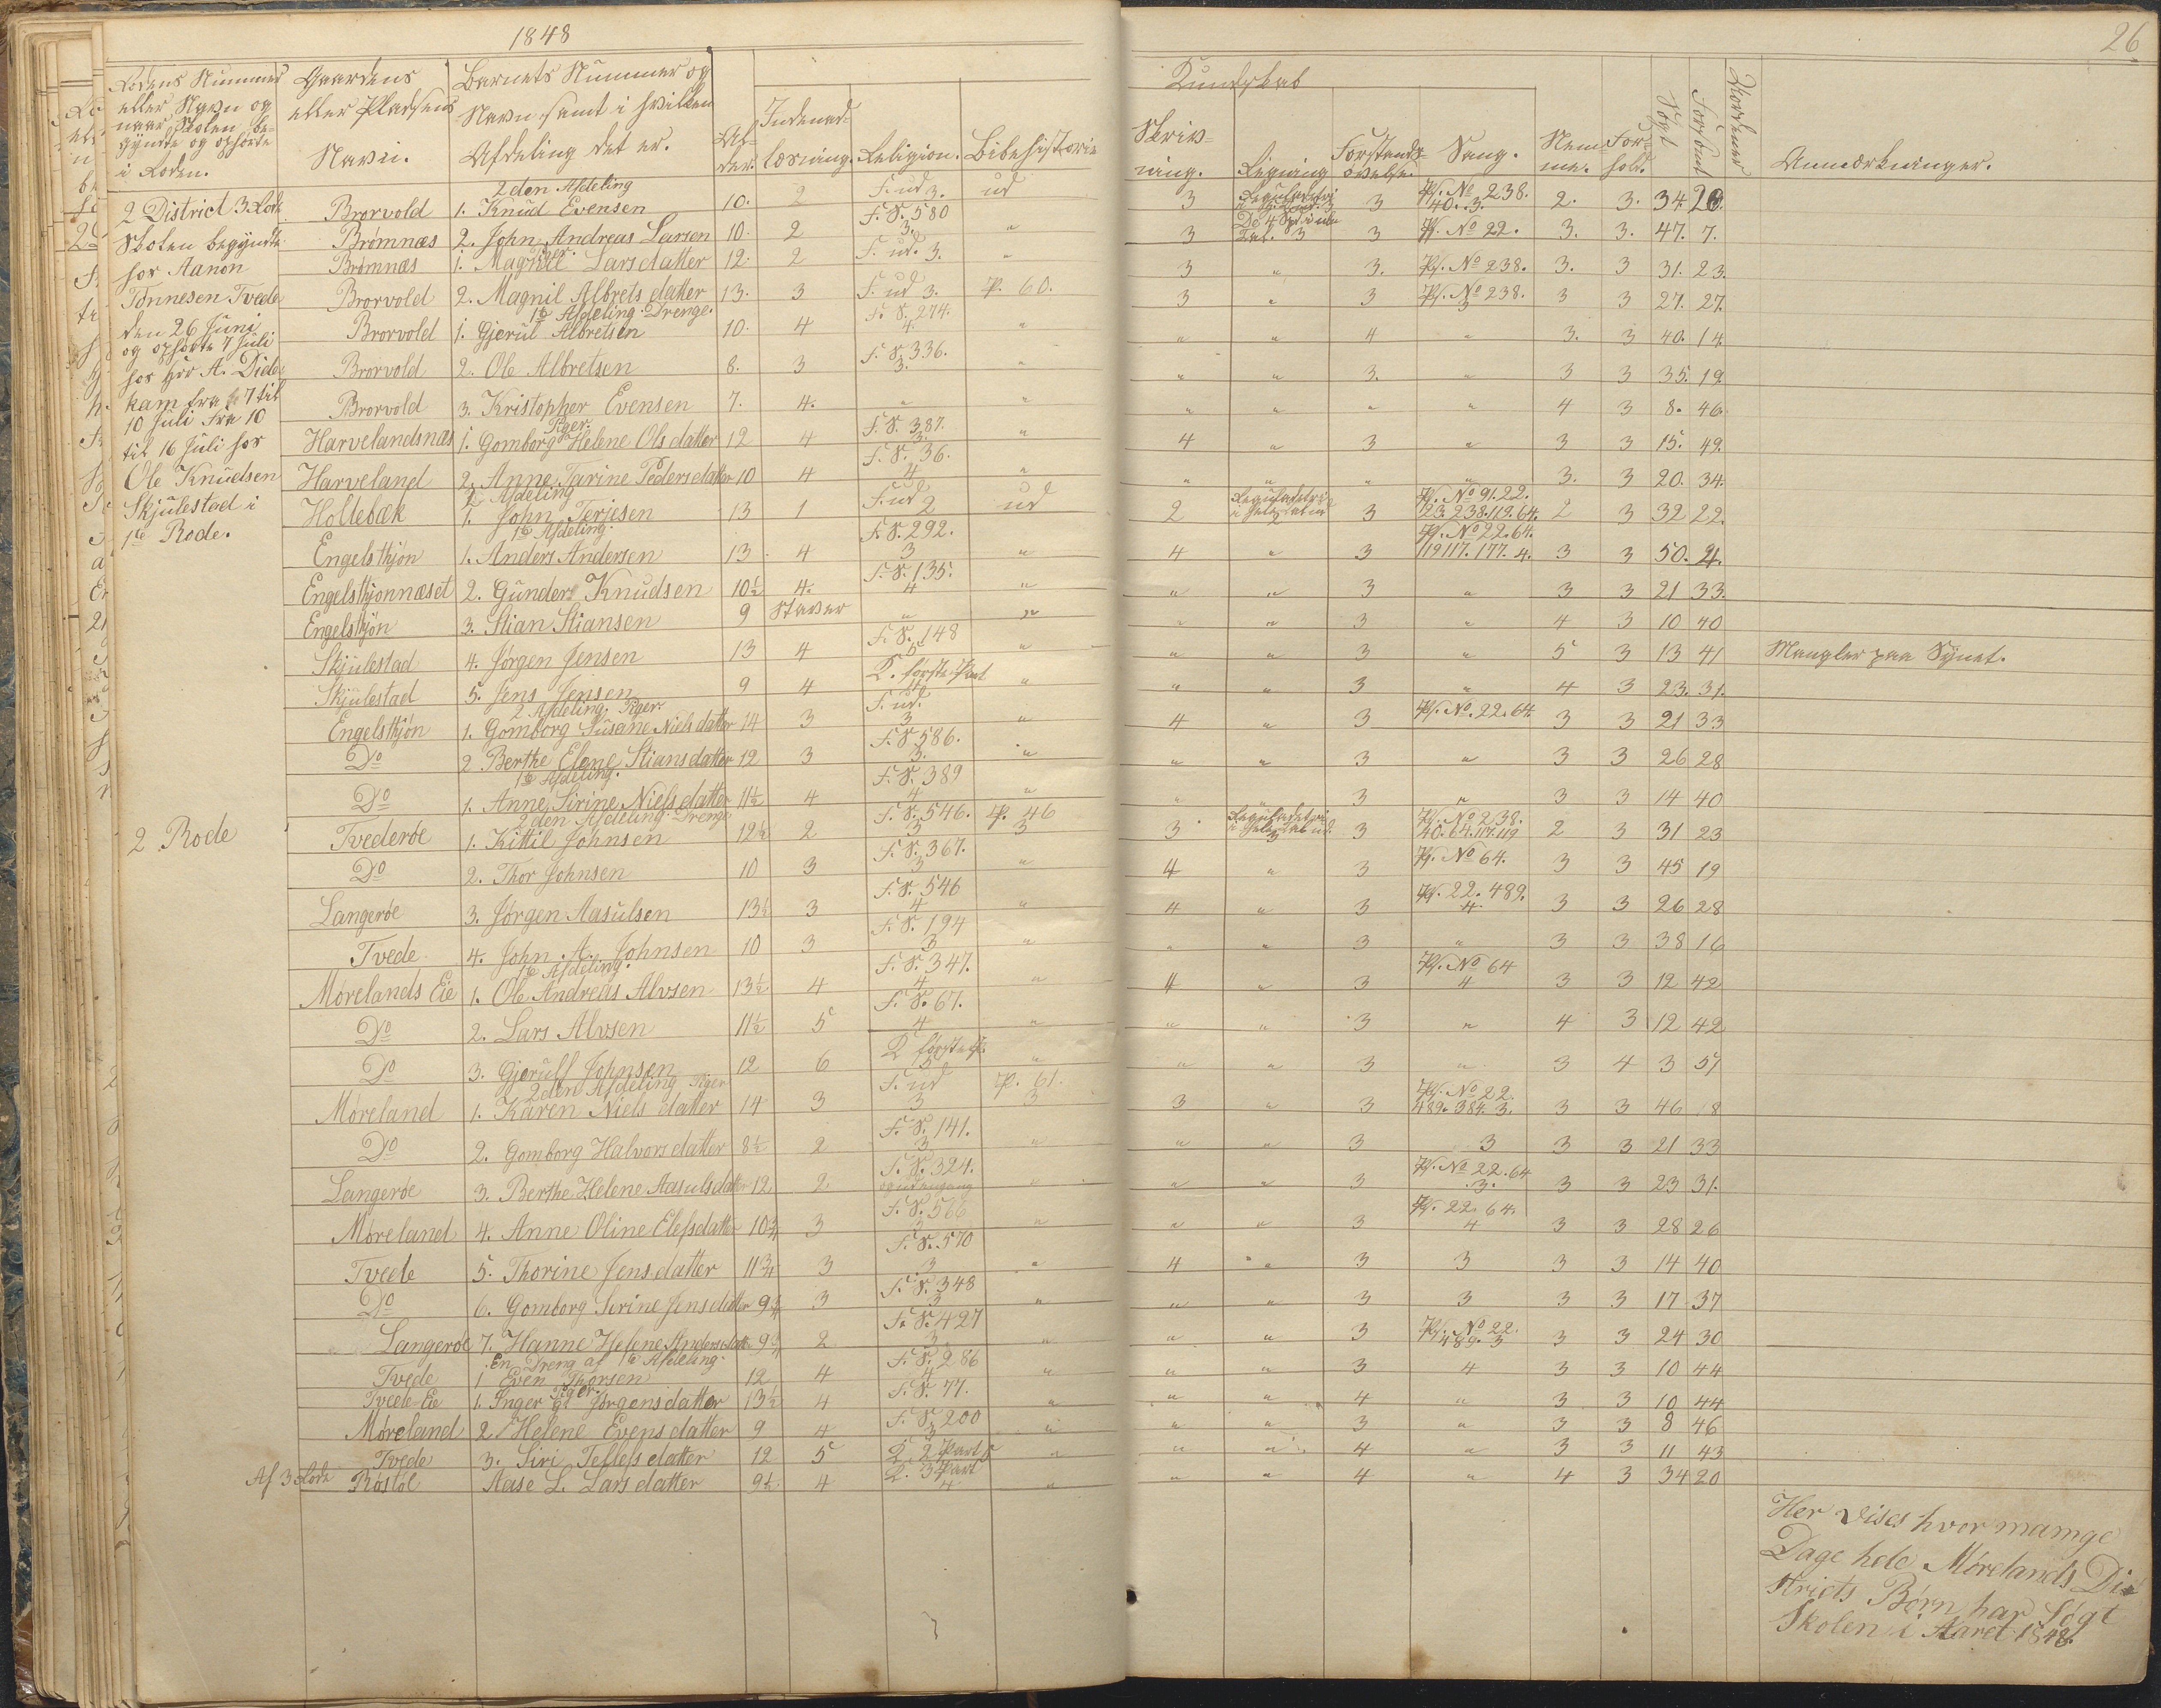 1848
26
Rodens Nummer
eller Navn og
naar Skolen be-
gyndte og ophørte
i Roden.
Gaardens
eller Pladsens
Navn.
Barnets Nummer og
Navn, samt i hvilken
Afdeling det er.
Al-
der.
Indenad-
læsning.
Religion.
Bibelhistorie
Kundskab
Skriv-
ning.
Regning
Forstands-
øvelse.
Sang.
Nem-
me.
For-
hold.
Søgt
Forsømt
Skoledage
Anmærkninger.
2 District 3 Rode
Skolen begyndte
hos Aanon
Tønnesen Tvede
den 26 Juni
og ophørte 7 Juli
kam fra 7 til
10 Juli fra 10
til 16 Juli hos
Ole Knudsen
Skjulestad i
1te Rode.
2den Afdeling
Brorvold 1. Knud Evensen 10. 2 F. ud 3. ud 3 3 Ps. No 238. 40. 3. 2. 3. 34. 20.
Brømnæs 2. John Andreas Larsen 10. 2 F. S. 580 3. " 3 3 Ps. No 22. 3. 3. 47. 7.
Piger.
Brømnæs 1. Magnil Larsdatter 12. 2 F. ud. 3. " 3 " 3. Ps. No 238. 3. 3 31. 23.
Brorvold 2. Magnil Albretsdatter 13. 3 F. ud 3. P. 60. 3 " 3 Ps. No 238. 3 3 3 27. 27.
1te Afdeling. Drenge.
Brorvold 1. Gjerul Albretsen 10. 4 F. S. 274. 4. " " " 4 " 3. 3 40. 14.
Brorvold 2. Ole Albretsen 8. 3 F. S. 336. 3. " " " 3. " 3 3 35. 19.
Brorvold 3. Kristopher Evensen 7. 4. " " " " " " 4 3 8. 46.
Piger.
Harvelandsnæs 1. Gomborg Helene Olsdatter 12 4 F. S. 387. 3. " 4 " 3 " 3 3 15. 49.
Harveland 2. Anne Tarine Pedersdatter 10 4 F. S. 36. 4 " " " " " 3. 3 20. 34.
2 Afdeling
Hollebæk 1. John Terjesen 13 1 F. ud 2 ud 2 3 Ps. No 91. 22. 23. 238. 119. 64. 2 3 32 22.
1te Afdeling.
Engelstkjøn 1. Anders Andersen 13. 4 F. S. 292. 3 " 4 " 3 Ps. No 22. 64. 119 117. 177. 4. 3 3 50. 4.
Engelstkjonnæset 2. Gunder Knudsen 10½ 4. F. S. 135. 4 " " " 3 " 3 3 21 33.
Engelstkjøn 3. Stian Stiansen 9 staver " " " " 3 " 4 3 10 40
Skjulestad 4. Jørgen Jensen 13 4 F. S. 148 5 " " " 3 " 5 3 13 41 Mangler paa Synet.
Skjulestad 5. Jens Jensen 9 4 L. første Part 4 " " " 3 " 4 3 23. 31.
2 Afdeling. Piger.
Engelstkjøn 1. Gomborg Susane Nielsdatter 14 3 F. ud. 3 " 4 " 3 Ps. No. 22. 64. 3 3 21 33
Do 2 Berthe Elene Stiansdatter 12 3 F. S 586. 3. " " " 3 " 3 3 26 28
1te Afdeling.
Do 1. Anne Sirine Nielsdatter 11½ 4 F. S. 389 4 " " " 3 " 3 3 14 40
2 Rode
2den Afdeling. Drenge
Tvederøe 1. Kittil Johnsen 12½ 2 F. S. 546. 3 P. 46 3 3 3 Ps. No 238. 20. 64. 117. 119 2 3 31 23
Do 2. Thor Johnsen 10 3 F. S. 367. 3 " 4 " 3 Ps. No 64. 3 3 45 19
Langerøe 3. Jørgen Aasulsen 13½ 3 F. S. 546 4 " 4 " 3 Ps. 22. 489. 4. 3 3 26 28
Tvede 4. John A. Johnsen 10 3 F. S. 194 3 " " " 3 " 3 3 38 16
1te Afdeling.
Mørelands Eie 1. Ole Andreas Alvsen 13½ 4 F. S. 347. 4 " 4 " 3 Ps. No 64 4 3 3 12 42
Do 2. Lars Alvsen 11½ 5 F. S. 67. 4 " " " 3 " 4 3 12 42
Do 3. Gjerulf Johnsen 12 6 L første P. 5 " " " 3 " 3 4 3 51
2den Afdeling Piger
Møreland 1. Karen Nielsdatter 14 3 F. ud 3 P. 61. 3 3 " 3 Ps. No 22. 489. 384. 3. 3 3 46 8
Do 2. Gomborg Halvorsdatter 8½ 2 F. S. 141. 3 " " " 3 3 3 3 21 33
Langerøe 3. Berthe Helene Aasulsdatter 12 2. F. S. 324. " " " 3 Ps. No 22. 64 3. 3 3 23 31.
Møreland 4. Anne Oline Elefsdatter 10¾ 3 F. S. 566 3 " " " 3 Ps. 22. 64. 4 3 3 28 26
Tvede 5. Thorine Jensdatter 11¾ 3 F. S. 570 3 " 4 " 3 3 3 3 14 40
Do 6. Gomborg Sirine Jensdatter 9¾ 3 F. S. 348 3 " " " 3 3 3 3 17 37
Langeroe 7. Hanne Helene Andersdatter 9¾ 2 F. S. 427 3 " " " 3 Ps. No 22. 489. 3 3 3 24 30
En Dreng af 1te Afdeling.
Tvede 1 Even Thorsen 12 4 F. S. 286 4 " " " 3 4 3 3 10 44
Piger.
Tvede Eie 1. Inger Gt Jørgensdatter 13½ 4 F. S. 77. " " " 4 " 3 3 10 44
Møreland 2 Helene Evensdatter 9 4 F. S. 200 3 " " " 3 " 3 3 8 46
Tvede 3. Siri Teflefsdatter 12 5 L 2 Part 5 " " " 4 " 3 3 11 43
Af 3 Rode Røstøl Aase L. Larsdatter 9½ 4 L. 3 Part 4 " " " 4 " 4 3 34 20
Her vises hvor mamge
Dage hele Mørelands Di-
stricts Børn har søgt
Skolen i Aaret 1848.